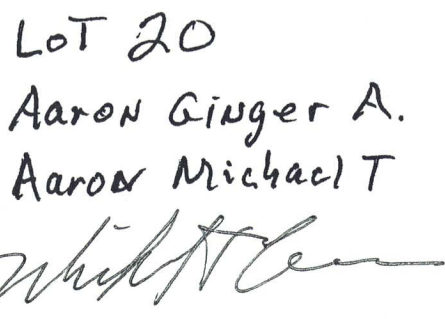 LOT 20
Aaron Ginger A.
Aaron Michael T